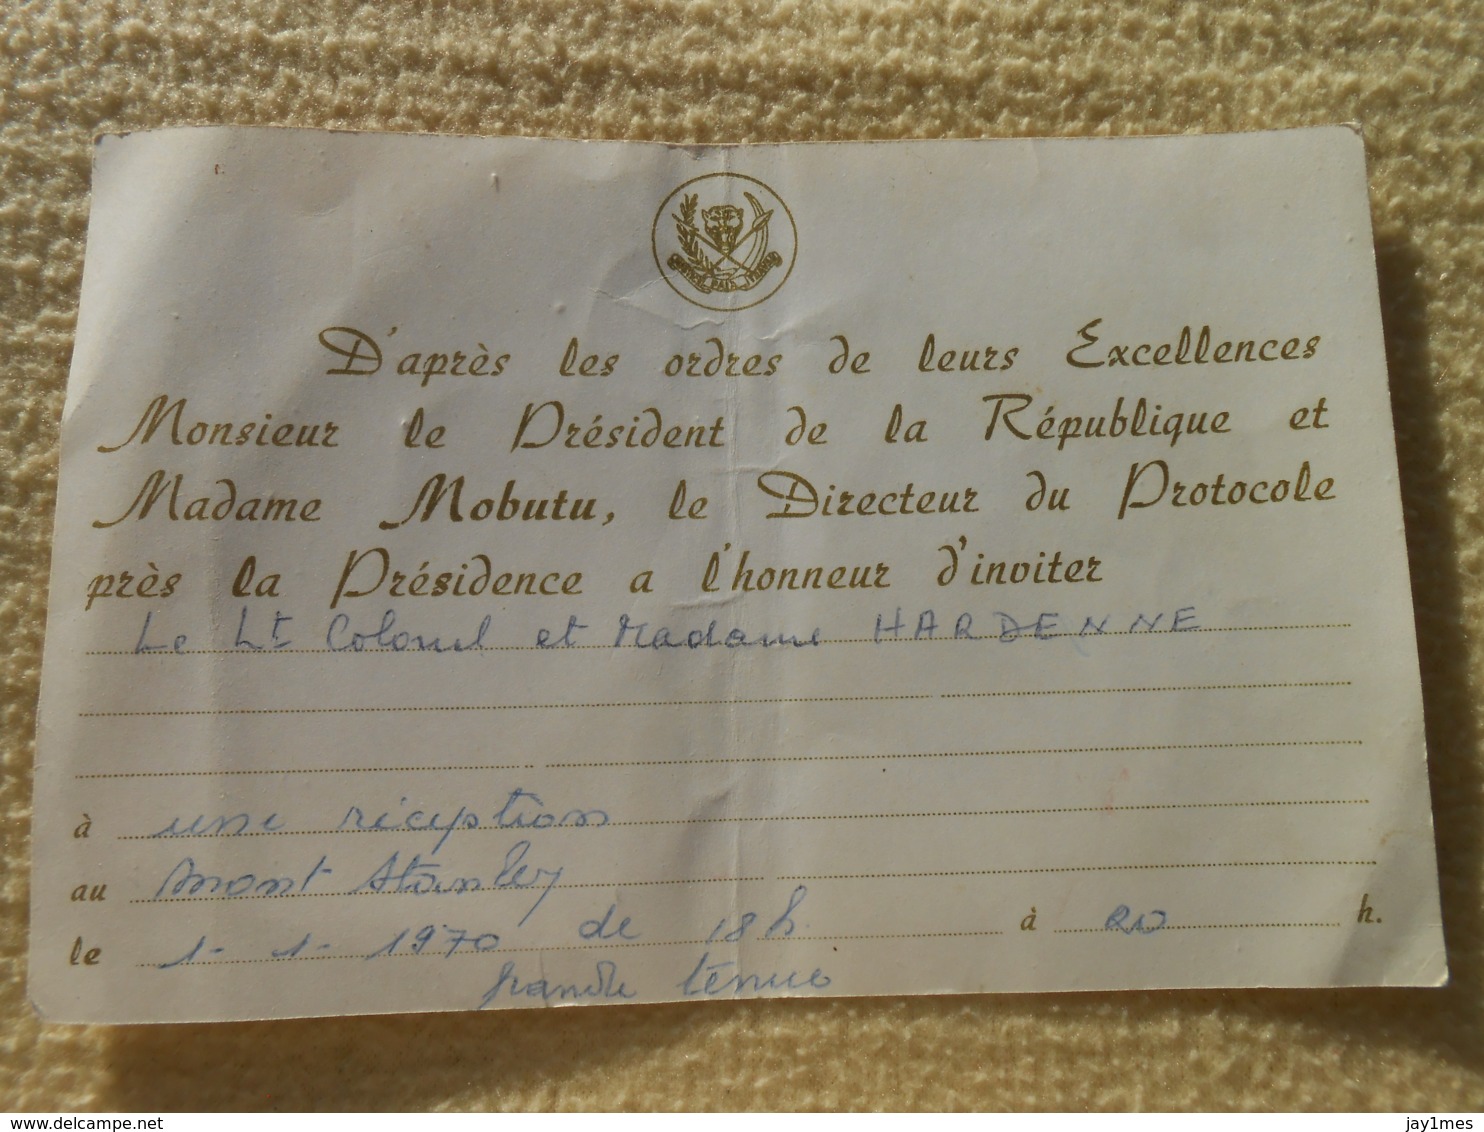 JUSTICE PAIX TRAVAIL
D'après les ordres de leurs Excellences
Monsieur le Président de la République et
Madame Mobutu, le Directeur du Protocole
près la Présidence a l'honneur d'inviter
Le Lt Colonel et Madame HARDENNE
à une réception
au mont Stanley
le 1-1-1970 de 18h à 20 h.
grande tenue
delcampe.net
jay1mes